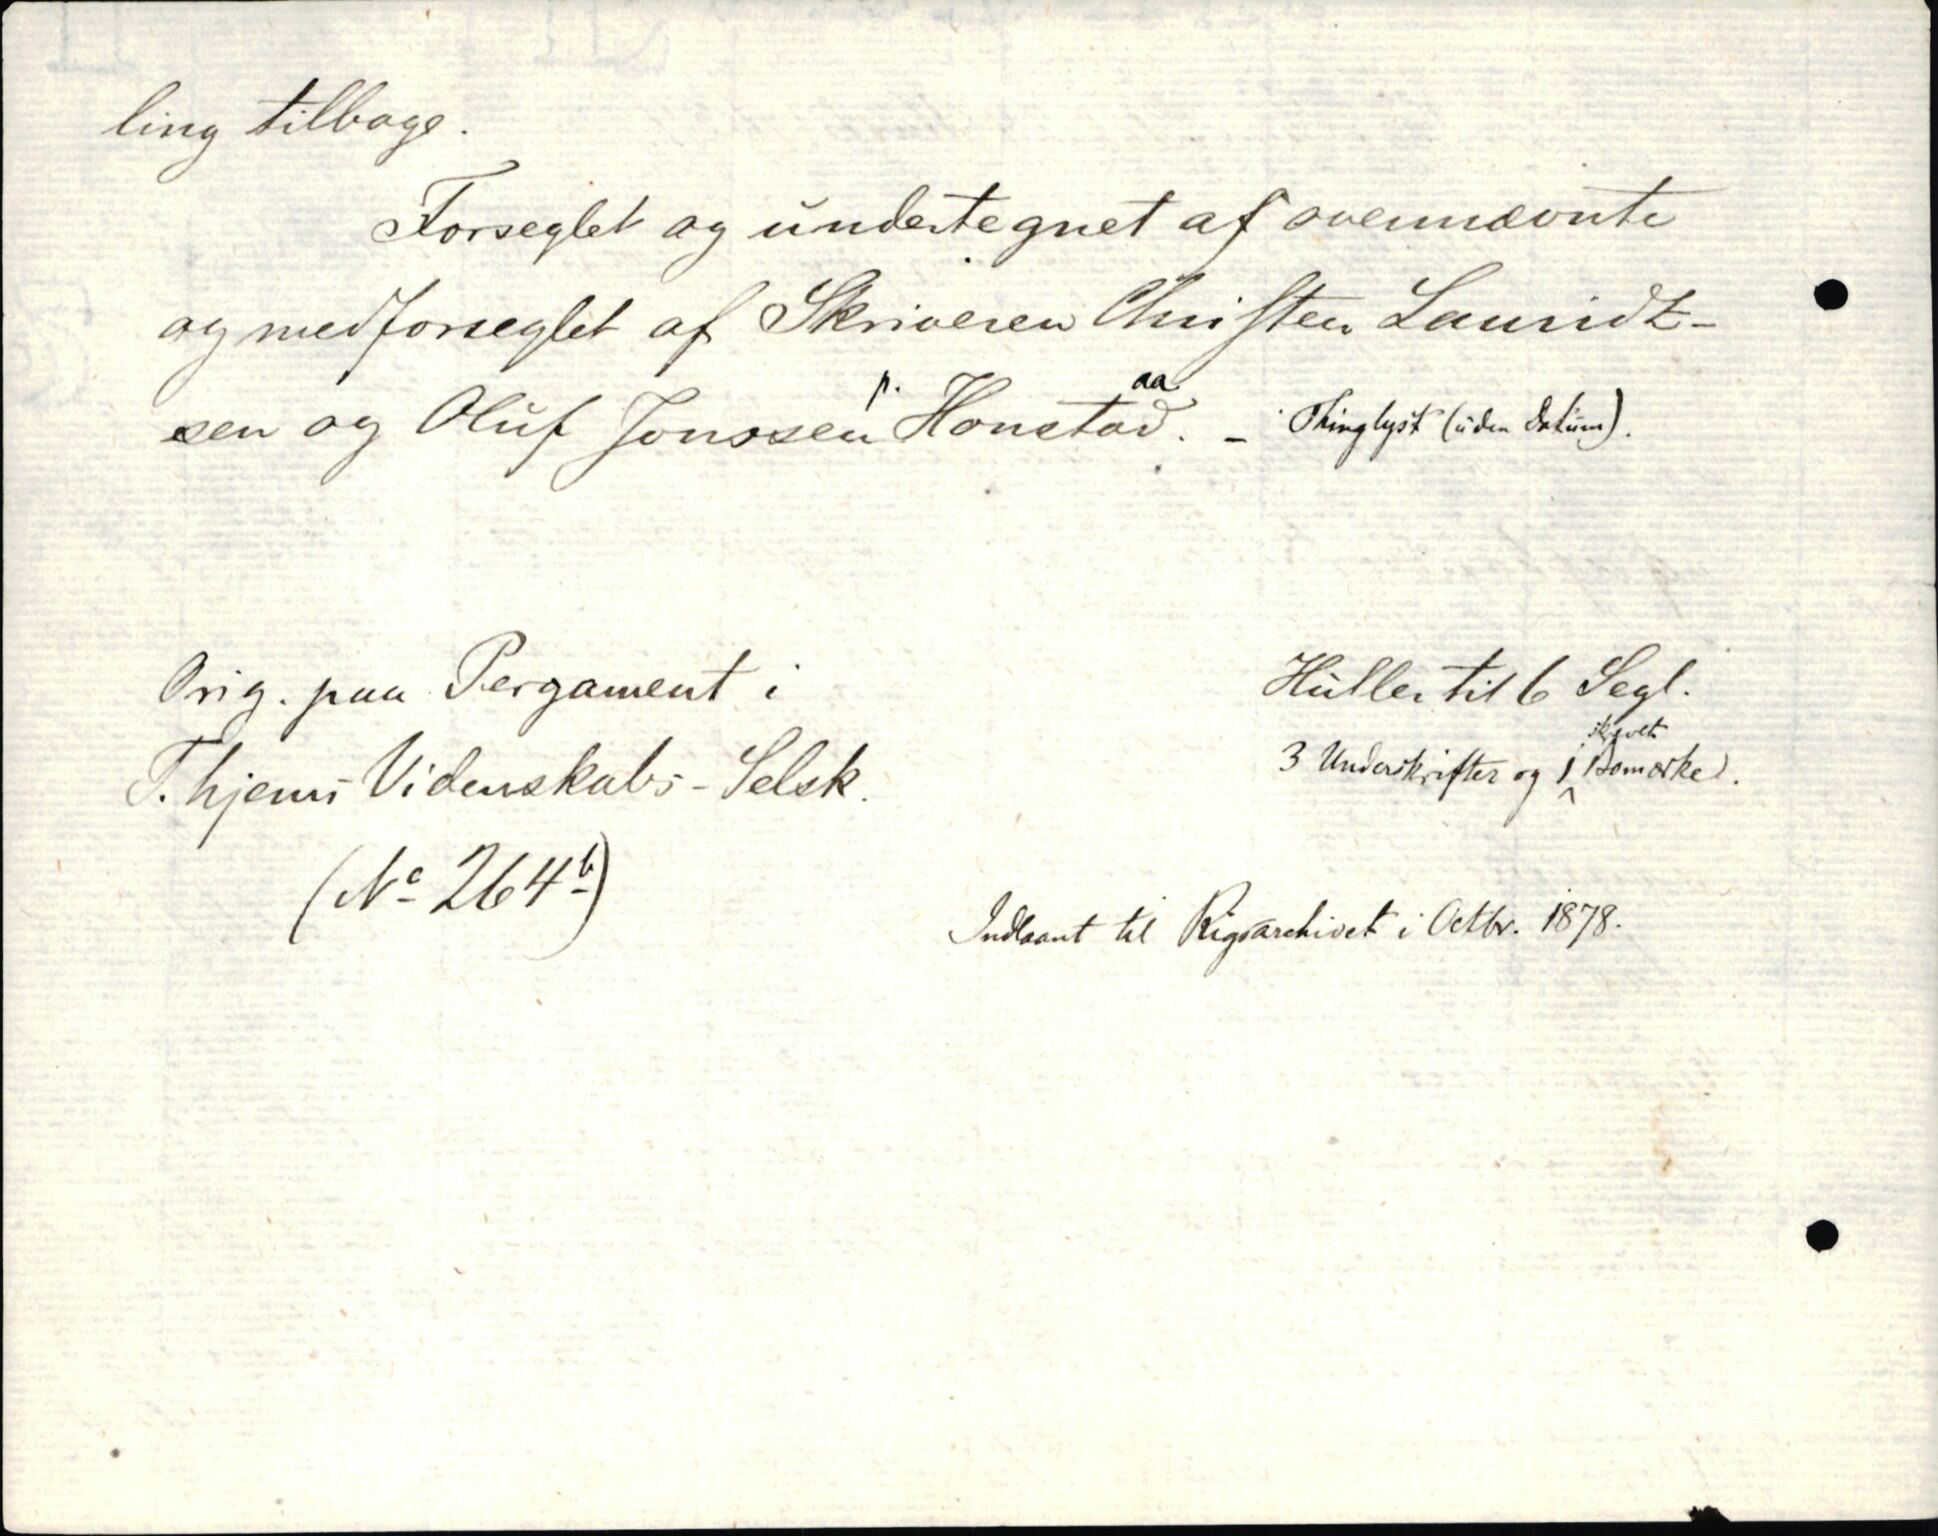 ling tilbage.
Forseglet og undertegnet af ovennævnte
og medforseglet af Skriveren Christen Lauridt-
sen og Oluf Jonssen p. Honstad. aa - Thinglyst (uden Datum).
Orig. paa Pergament i
T.hjems Videnskabs-Selsk.
(No 264b)
Huller til 6 Segl.
3 Underskrifter og 1 skrevet Bomærke).
Indlaant til Rigsarchivet i Octbr. 1878.